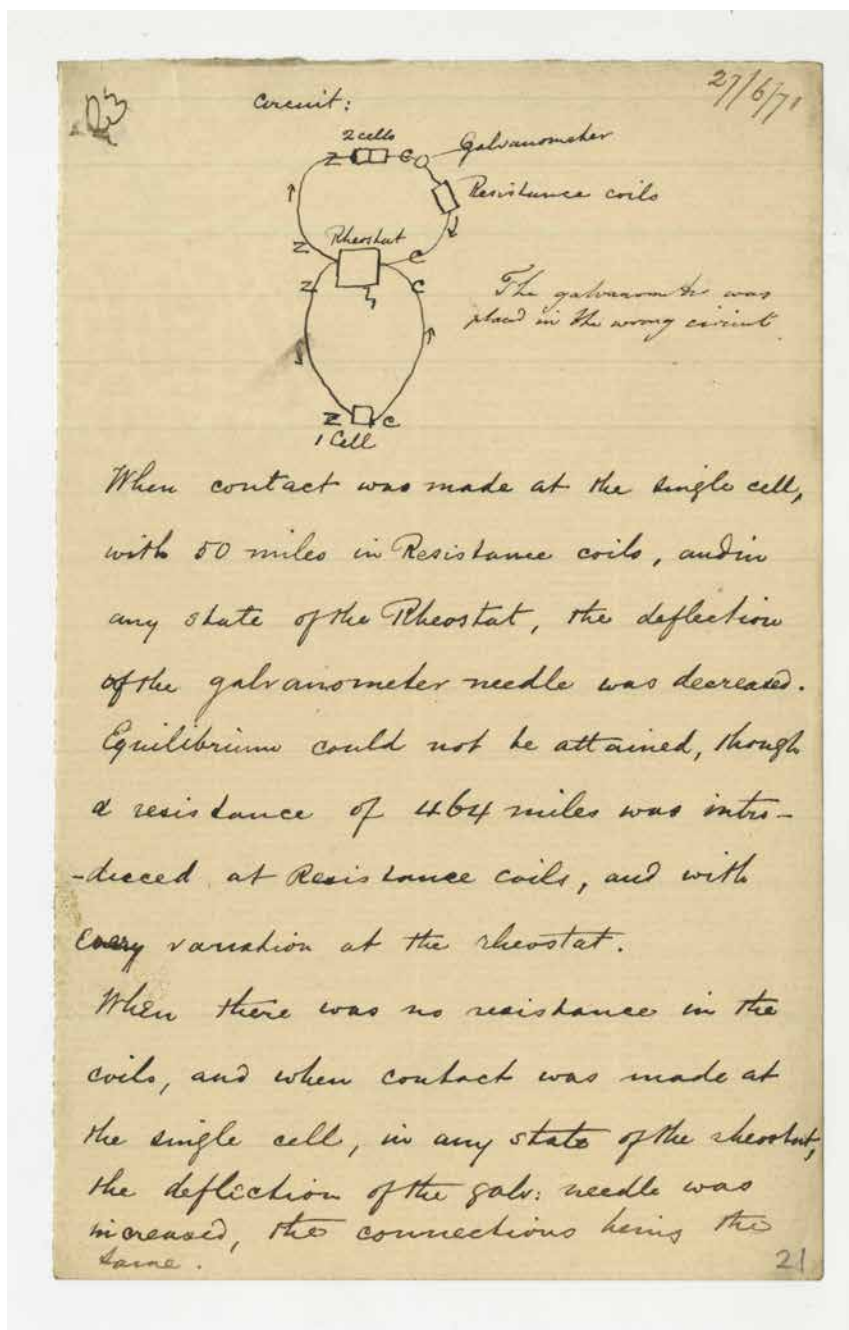 23
27/6/71
Circuit:
2 cells
Z C
Galvanometer
Resistance coils
Rheostat
Z C
Z C
The galvanometer was
placed in the wrong circuit
Z C
1 Cell
When contact was made at the single cell,
with 50 miles in Resistance coils, and in
any state of the Rheostat, the deflection
of the galvanometer needle was decreased.
Equilibrium could not be attained, though
a resistance of 464 miles was intro-
-duced at Resistance coils, and with
every variation at the rheostat.
When there was no resistance in the
coils, and when contact was made at
the single cell, in any state of the rheostat,
the deflection of the galv: needle was
increased, the connections being the
same.
21